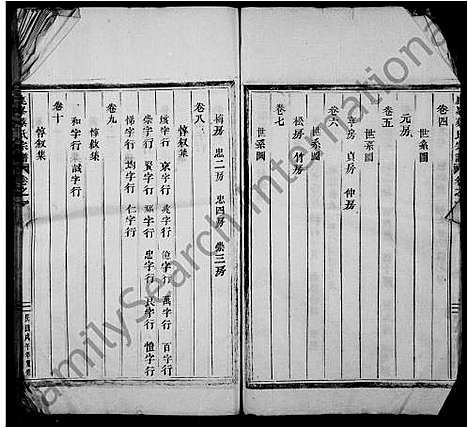 卷四
世系圖
元房
卷五
世系圖
亨房 貞房 仲房
卷六
世系圖
松房 竹房
卷七
世系圖
梅房 忠二房 忠四房 崇三房
卷八
惇敘集
京字行 億字行 萬字行 百字行
崇字行 賢字行 忠字行 良字行 惟字行
悌字行 均字行 仁字行
卷九
惇敘集
和字行 誠字行
卷十
惇敘集
FamilySearch International